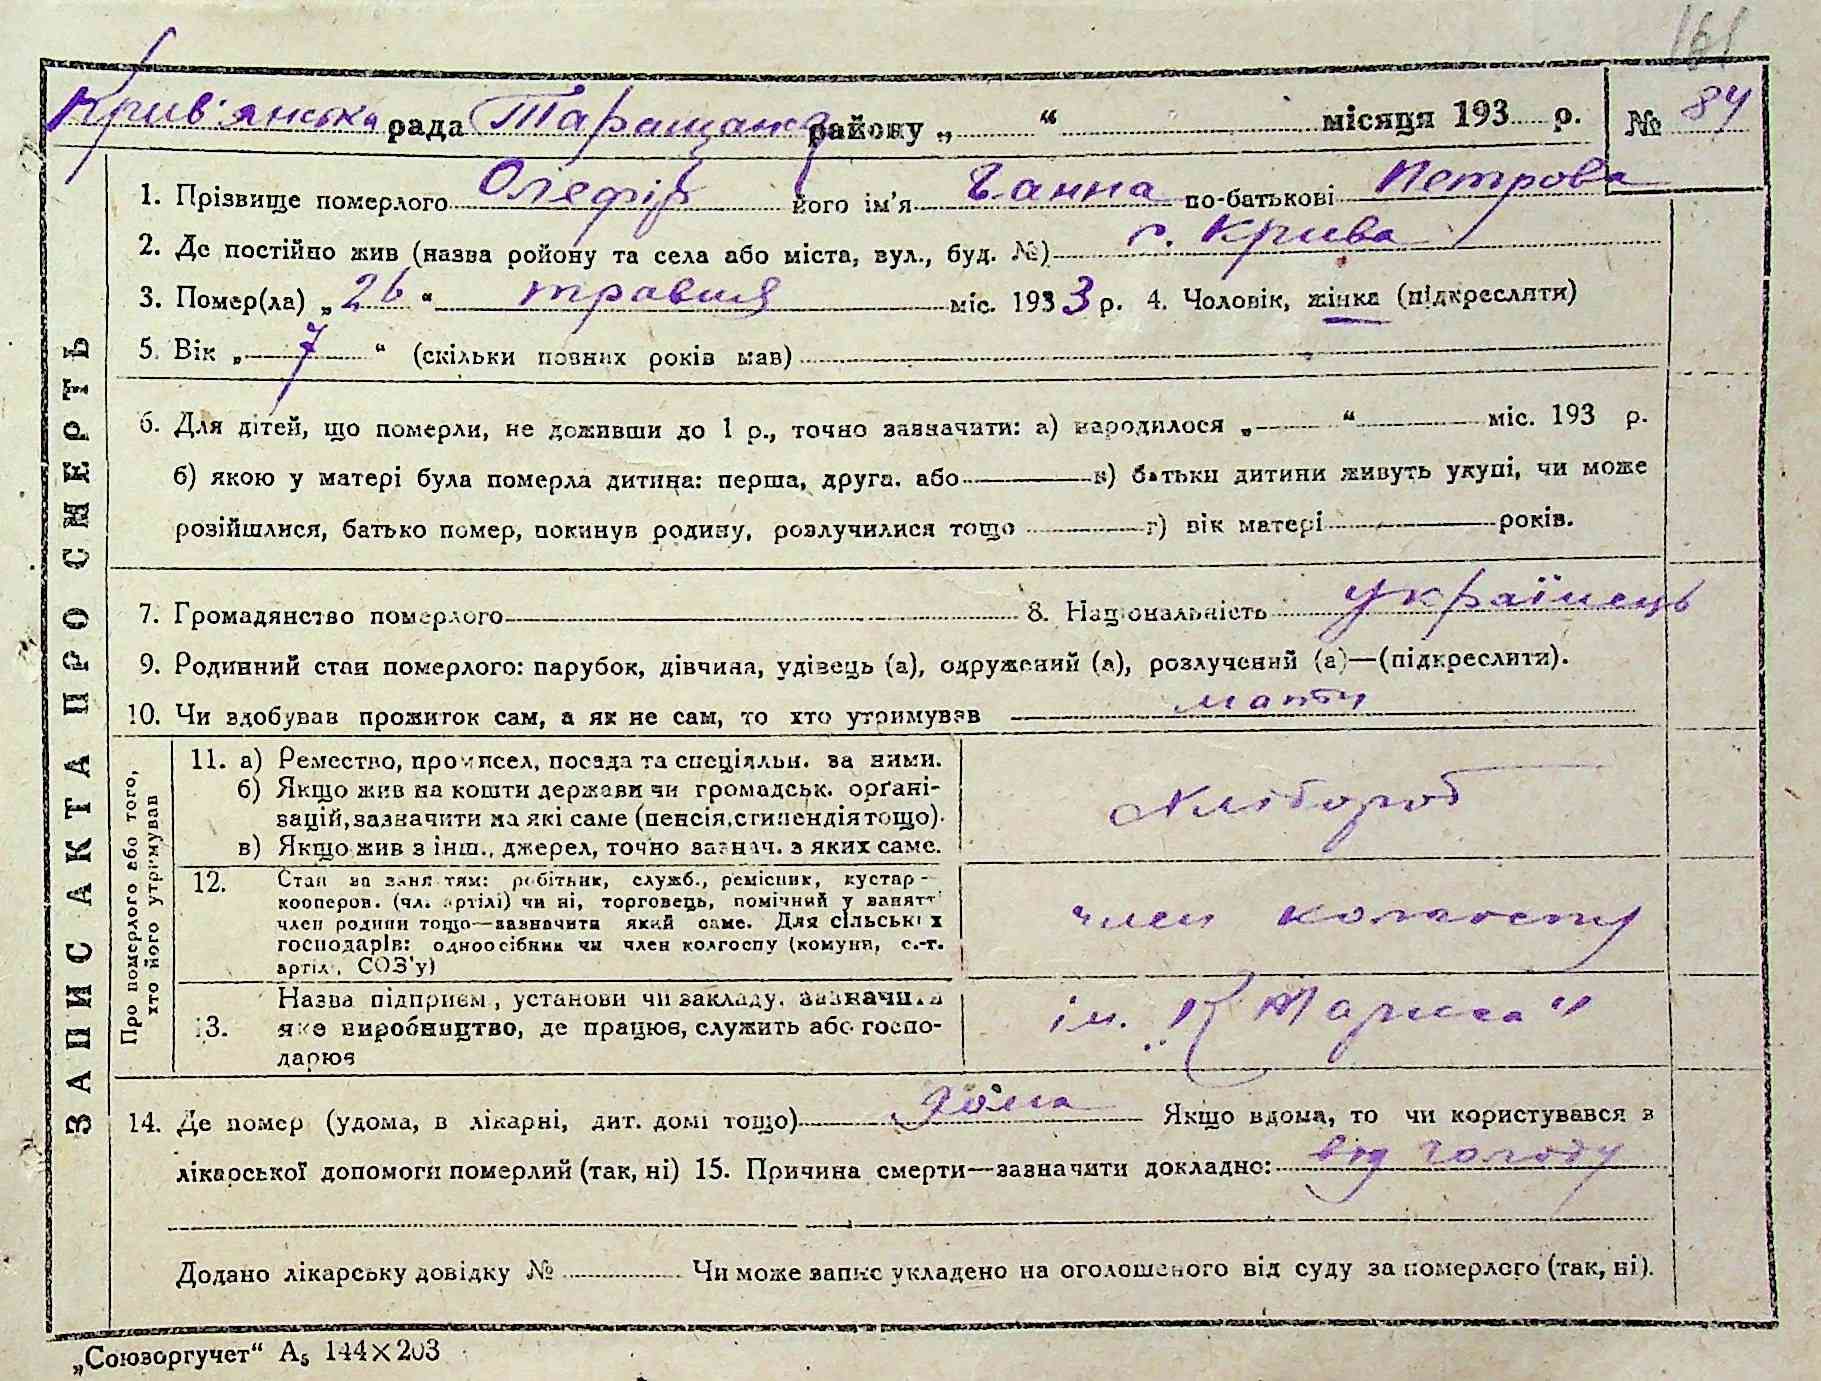 161
Крив'янська рада Таращанс району „ “ місяця 193 р. № 84
ЗАПИС АКТА ПРО СМЕРТЬ
1. Прізвище померлого Олефір його ім'я Ганна по-батькові Петрова
2. Де постійно жив (назва ройону та села або міста, вул., буд. №) с. Крива
3. Помер(ла) „26“ травня міс. 1933 р. 4. Чоловік, жінка (підкресляти)
5. Вік „7“ (скільки повних років мав)
6. Для дітей, що померли, не доживши до 1 р., точно зазначити: а) народилося „ “ міс. 193 р.
б) якою у матері була померла дитина: перша, друга. або в) батьки дитини живуть укупі, чи може
розійшлися, батько помер, покинув родину, розлучилися тощо г) вік матері років.
7. Громадянство померлого 8. Національність українець
9. Родинний стан померлого: парубок, дівчина, удівець (а), одружений (а), розлучений (а)—(підкреслити).
10. Чи здобував прожиток сам, а як не сам, то хто утримував мати
Про померлого або того,
хто його утримував
11. а) Ремество, промисел, посада та спеціяльн. за ними.
б) Якщо жив на кошти держави чи громадськ. орґані-
зацій, зазначити на які саме (пенсія, стипендія тощо).
в) Якщо жив з інш., джерел, точно зазнач. з яких саме.
Хлібороб
12. Стан за заняттям: робітник, служб., ремісник, кустар-
кооперов. (чл. артілі) чи ні, торговець, помічний у занятт
член родини тощо—зазначити який саме. Для сільських
господарів: одноосібник чи член колгоспу (комуни, с.-г.
артілі, СОЗ'у)
член колгоспу
13. Назва підприєм, установи чи закладу, зазначити
яке виробництво, де працює, служить або госпо-
дарює
ім. „К Маркса“
14. Де помер (удома, в лікарні, дит. домі тощо) дома Якщо вдома, то чи користувався з
лікарської допомоги померлий (так, ні) 15. Причина смерти—зазначити докладно: від голоду
Додано лікарську довідку № Чи може запис укладено на оголошеного від суду за померлого (так, ні).
„Союзоргучет“ А5 144×203